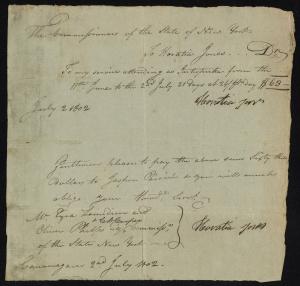 The Commissioners of the State of New York
To Horatio Jones Dr
To my service attending as Interpreter from the
11th June to the 2nd July 21 days at 24/ per day $63
July 2 1802 Horatio Jones
Gentlemen please to pay the above sum Sixty three
dollars to Jasper Parrish & you will much
oblige your Humbl Servt
Mr Ezra
Oliver Phelps
of the State New York
Horatio Jones
Canandaigua 2nd July 1802.